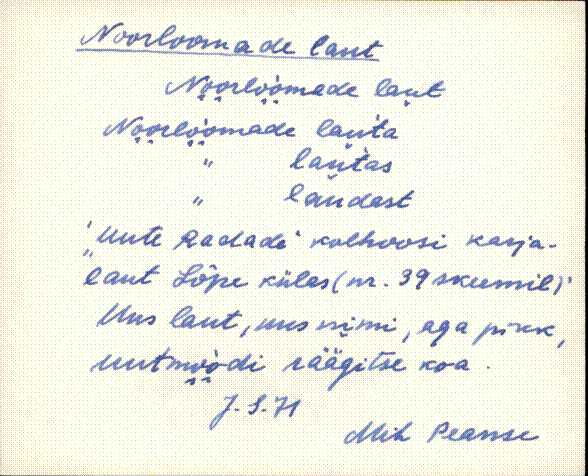 Noorloomade laut
Noorloomade laut
Noorloomade lauta
" lautas
" laudast
"Uute Radade" kolhoosi karja-
laut Lõpe külas (nr. 39 skeemil)
Uus laut, uus nimi, aga pikk,
uutmoodi räägitse koa.
J. S. 71
Mih Peanse